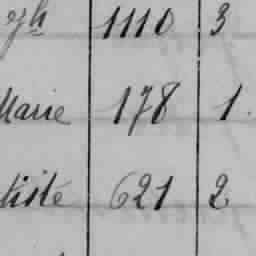 1110 3
Marie 178 1.
tiste 621 2